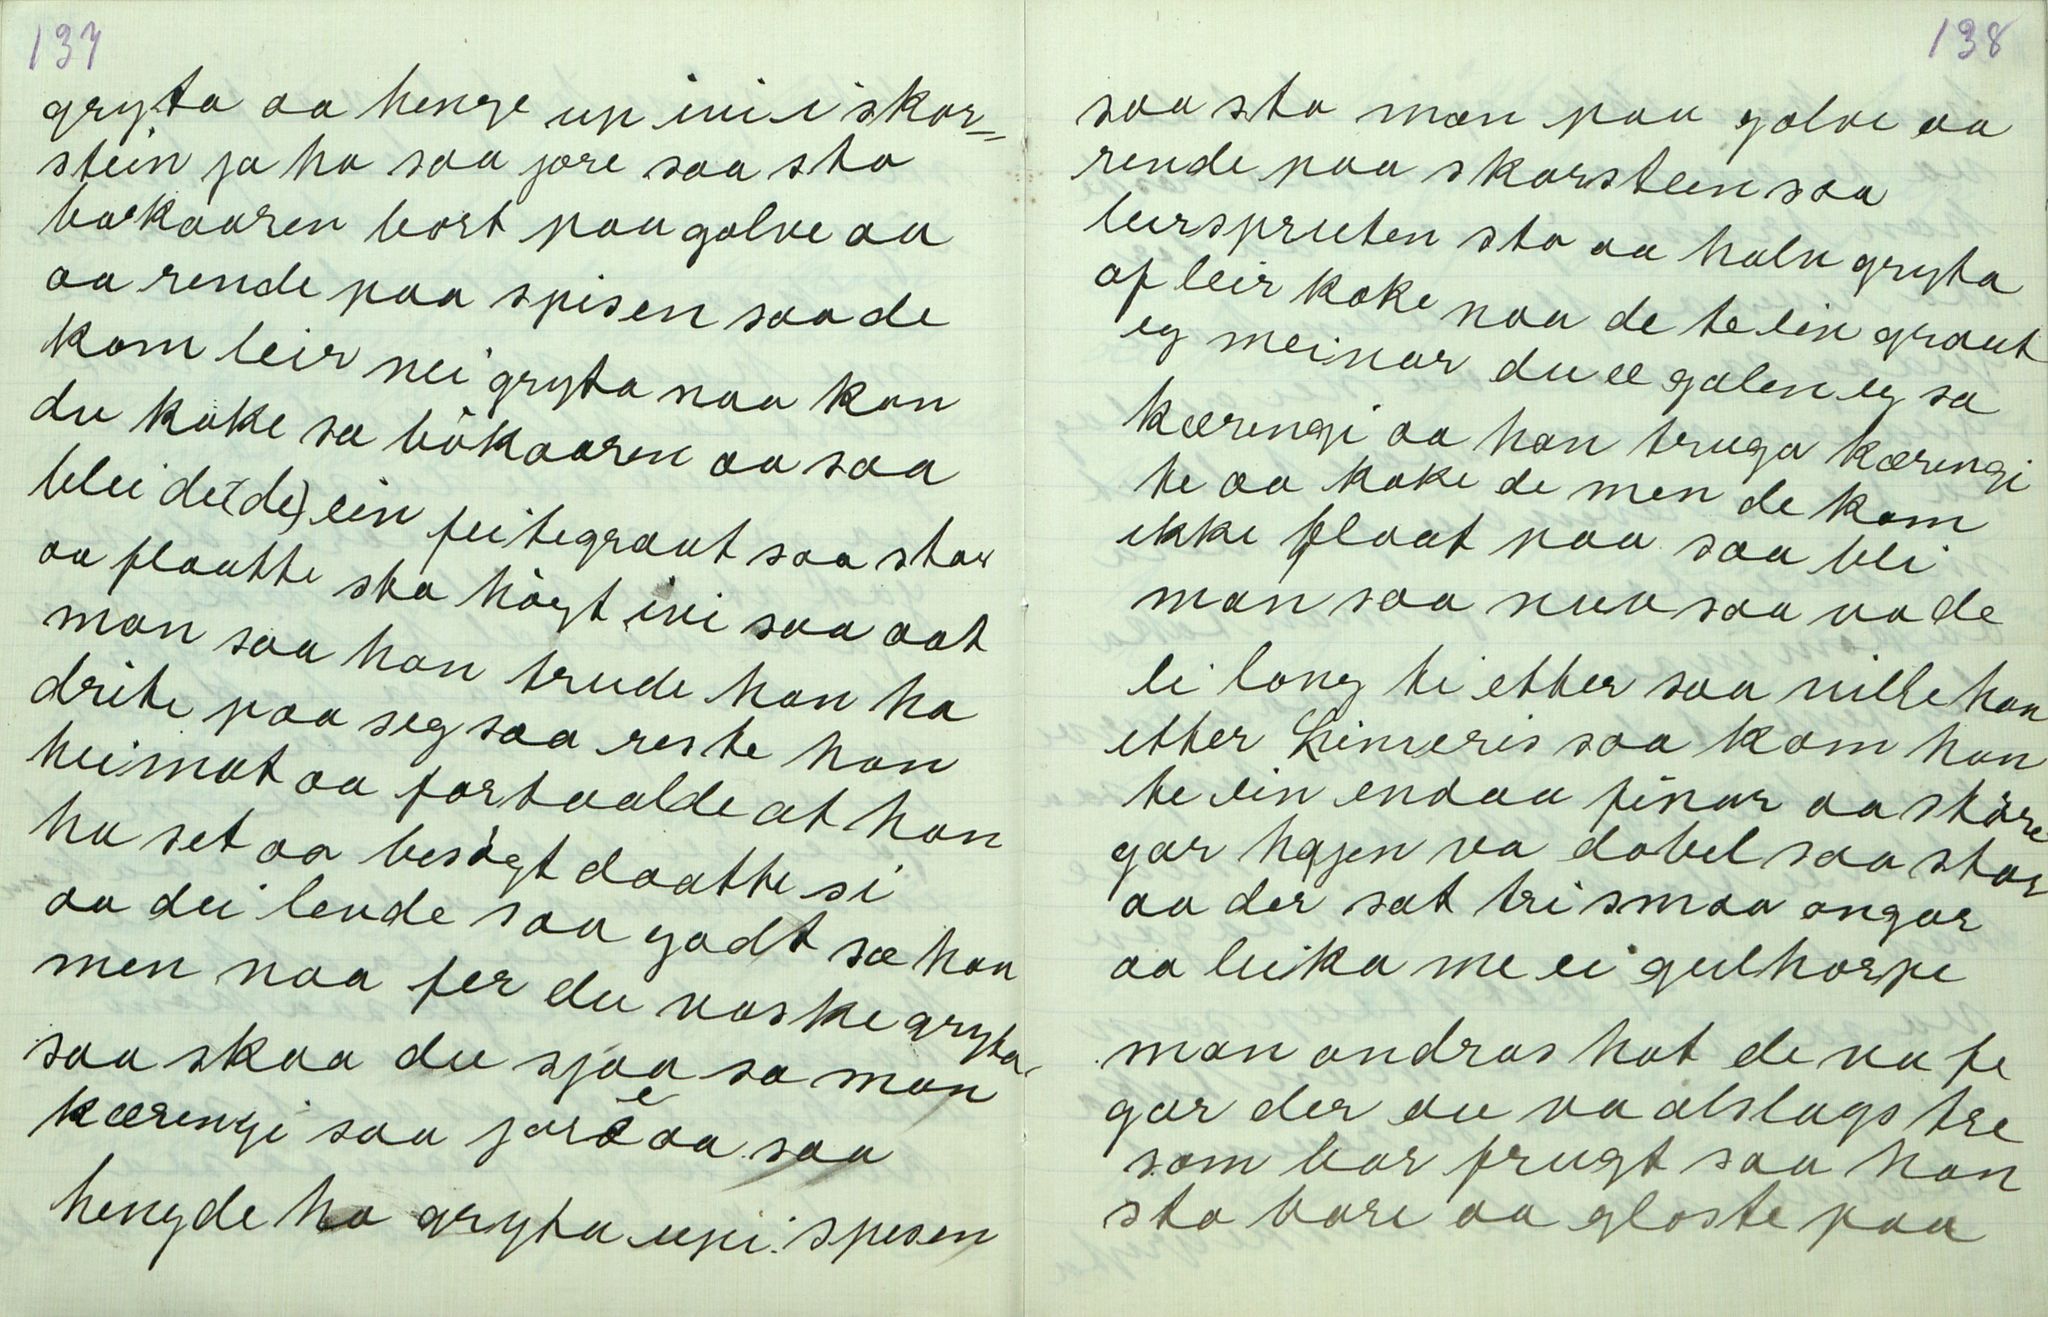 137
gryta aa henge up ini i skor=
stein ja ho saa jore saa sto
borkaaren bort paa golve aa
aa rende paa spisen saa de
kom leir nei gryta naa kan
du koke sa bökaaren aa saa
blei det(de) ein feitegraut saa stor
aa flautte sto högt ivi saa aat
man saa han trude han ha
drite paa seg saa reste han
heimat aa fortaalde at han
ha set aa besögt daatte si
aa dei levde saa godt sæ han
men naa fer du vaske gryta
saa skaa du sjaa sa man
kærengi saa jore aa saa
hengde ho gryta upi spesen
138
saa sto man paa golve aa
rende paa skorsteen saa
leirspruten sto aa halv gryta
af leir koke naa de te ein graut
eg meinar du ee galen eg sa
kærengi aa han truga kærengi
te aa koke de men de kom
ikke flaat paa saa blei
man saa snua saa va de
ei long ti etter saa vilde han
etter Limeris saa kom han
te ein endaa finar aa störe
gar hajen va dobel saa stor
aa der sat tri smaa ongar
aa leika me ei gulhorpe
man ondras hot de va fe
gar der au va alslags tre
som bar frugt saa han
sto bare aa gloste paa